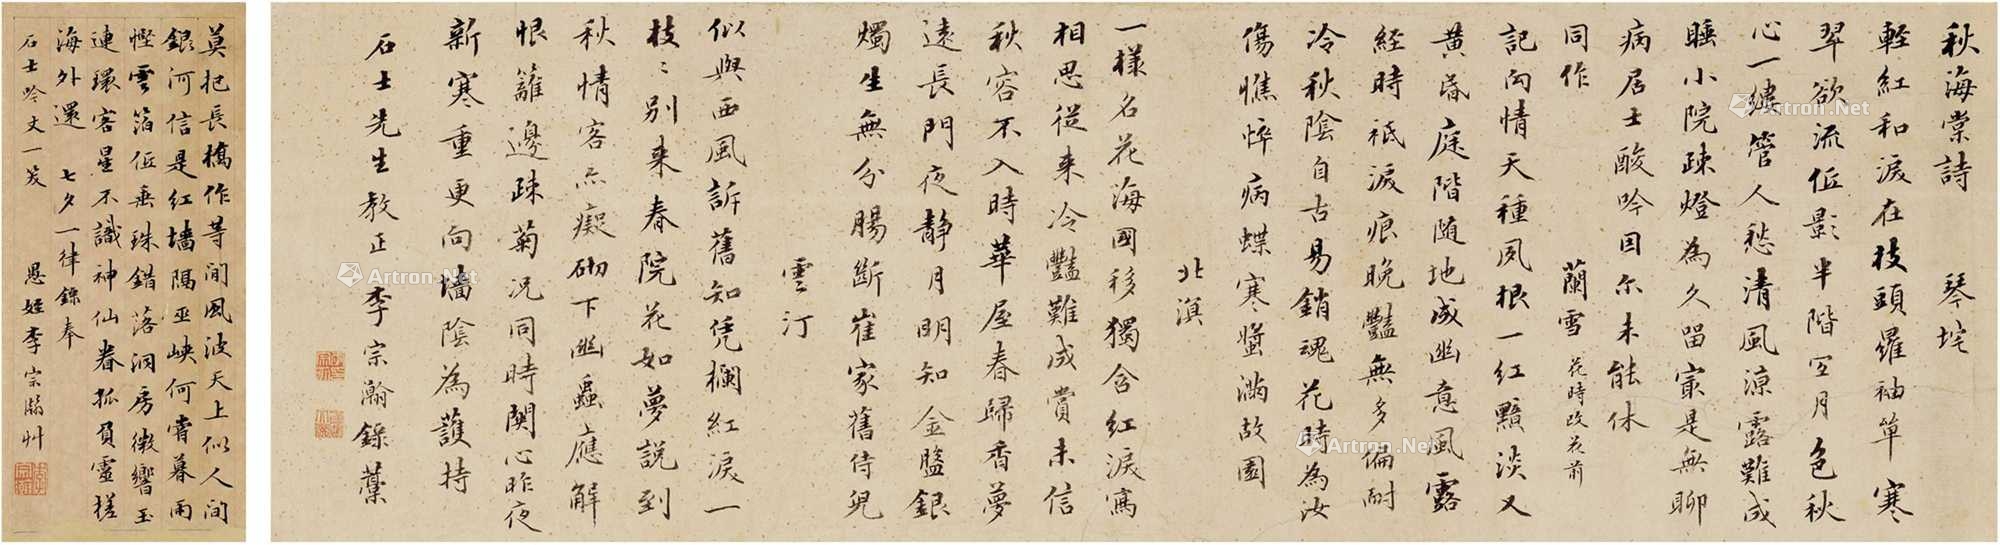 秋海棠詩 琴垞
輕紅和淚在枝頭羅袖單寒
翠欲流低影半階空月色秋
心一縷管人愁清風涼露難成
睡小院疎燈為久留寂是無聊
病居士酸吟因尔未能休
同作 蘭雪 花時改花前
記向情天種夙根一紅黯淡又
黃昏庭階隨地成幽意風露
經時祇淚痕晚豔無多偏耐
冷秋陰自古易銷魂花時為汝
傷憔悴病蝶寒螿滿故園
北溟
一樣名花海國移獨含紅淚寫
相思從来冷豔難成賞未信
秋容不入時華屋春歸香夢
遠長門夜靜月明知金盤銀
燭生無分腸斷崔家舊侍兒
雲汀
似與西風訴舊知凭欄紅淚一
枝〻別来春院花如夢說到
秋情客亦癡砌下幽蟲應解
恨籬邊疎菊況同時関心昨夜
新寒重更向墻陰為護持
石士先生教正李宗瀚錄藁
莫把長橋作等閒風波天上似人間
銀河信是紅墻隔巫峽何嘗暮雨
慳雲箔低垂珠錯落洞房微響玉
連環客星不識神仙眷孤負靈槎
海外還 七夕一律錄奉
石士吟丈一笑 愚姪李宗瀚艸
Artron.Net
Artron.Net
Artron.Net
Artron.Net
Artron.Net